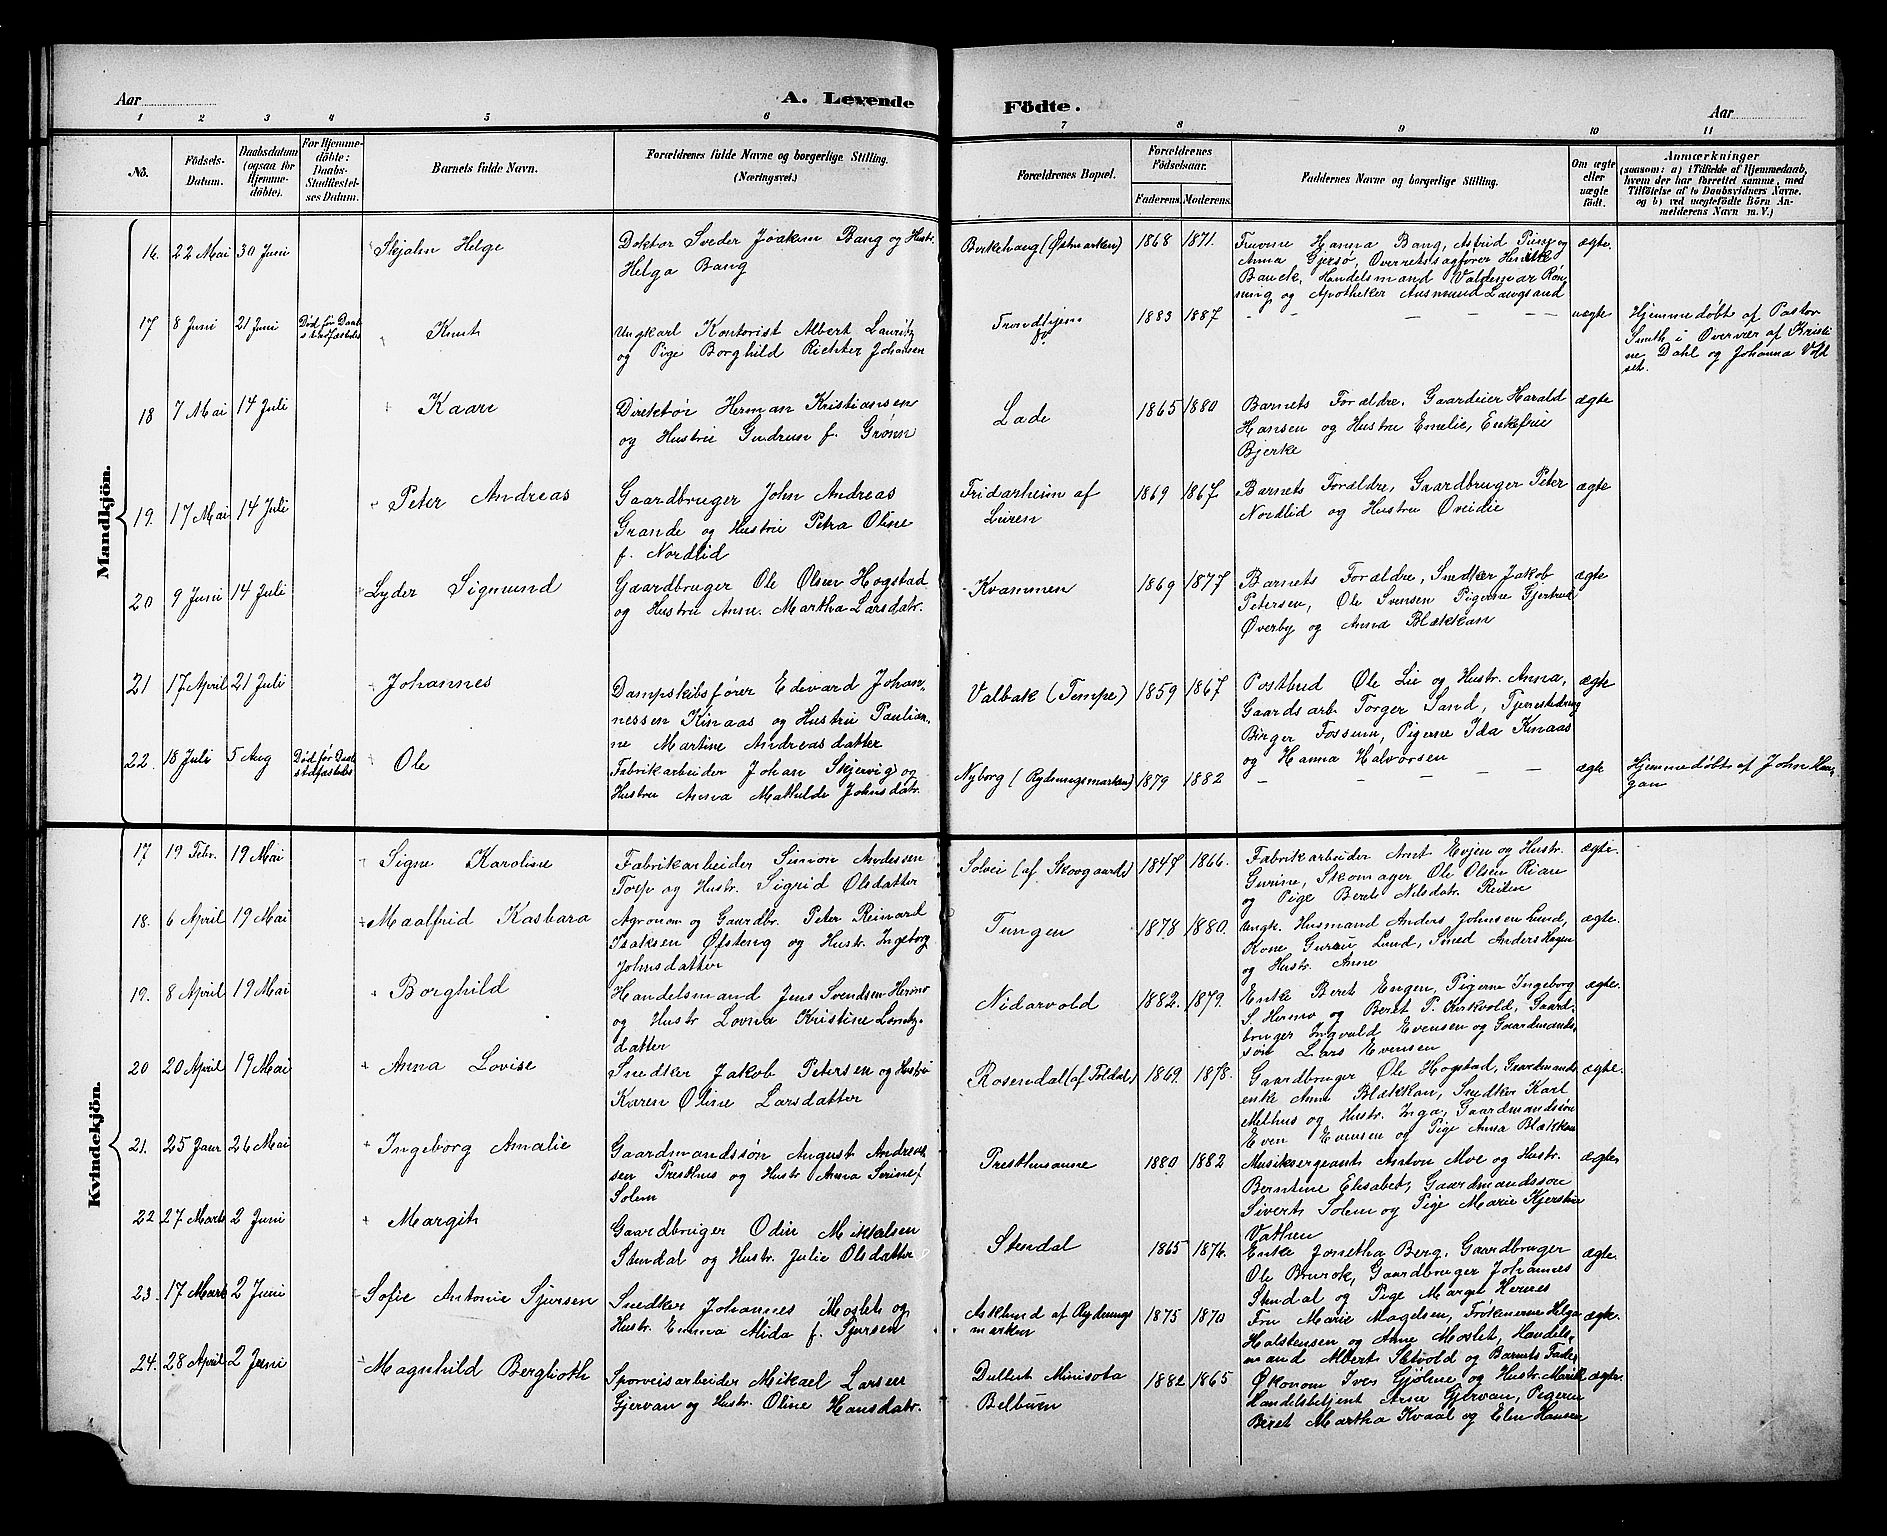 Aar
A. Levende
Födte.
Aar
1 2 3 4 5 6 7 8 9 10 11
No.
Födsels-
Datum.
Daabsdatum
(ogsaa for
Hjemme-
döbte).
For Hjemme-
döbte:
Daabs-
Stadfæstel-
ses Datum.
Barnets fulde Navn.
Forældrenes fulde Navne og borgerlige Stilling.
(Næringsvei.)
Forældrenes Bopæl.
Forældrenes
Födselsaar.
Faderens. Moderens.
Faddernes Navne og borgerlige Stilling.
Om ægte
eller
uægte
födt.
Anmærkninger
(saasom: a) i Tilfælde af Hjemmedaab,
hvem der har forrettet samme, med
Tilföielse af to Daabsvidners Navne,
og b) ved uægtefödte Börn An-
melderens Navn m. V.)
Mandkjön.
16. 22 Mai 30 Juni
Skjalm Helge
Doktor Sveder Joakim Bang og Hustr.
Helga Bang
Birkehaug (Østmarken)
1868 1871.
Fruerne Hanna Bang, Astrid
Anna Gjersø, Overretssagfører Henrik
Bauck, Handelsmand Valdemar Røn-
ning og Apotheker Aasmund Langsand
ægte.
17 8 Juni 21 Juni
Død før Daab-
stadfæstelse
Knut
Ungkarl Kontorist Albert Lauritz
og Pige Borghild Richter Johansen
Trondhjem
1883 1887
— — — — — —
uægte
Hjemmedøbt af Pastor
Smith i Overvær af Kristi
ne Dahl og Johanna Vold
set.
18 7 Mai 14 Juli
Kaare
Direktør Herman Kristiansen
og Hustru Gudrun f. Grønn
Lade
1865 1880
Barnets Forældre, Gaardeier Harald
Hansen og Hustru Emelie, Enkefru
Bjerke
ægte
19. 17 Mai 14 Juli
Peter Andreas
Gaardbruger John Andreas
Grande og Hustru Petra Oline
f. Nordlid
Fridarheim af
Leiren
1869 1867
Barnets Forældre, Gaardbruger Peter
Nordlid og Hustru Ovidie
ægte
20 9 Juni 14 Juli
Lyder Sigmund
Gaardbruger Ole Olsen Hogstad
og Hustru Anne Martha Larsdatr.
Kvammen
1869 1877
Barnets Forældre, Snedker Jakob
Petersen, Ole Svensen Pigerne Gjertrud
Øverby og Anna Blækkan
ægte
21 17 April 21 Juli
Johannes
Dampskibsfører Edevard Johan-
nessen Kinaas og Hustru Paulian-
ne Martine Andreasdatter
Valbak (Tempe)
1859 1867
Postbud Ole Lie og Hustr. Anna,
Gaardsarb. Torger Sand, Tjenestedreng
Birger Fossum, Pigerne Ida Kinaas
og Hanna Halvorsen
ægte
22. 18 Juli 5 Aug
Død før Daab-
stadfæstelse
Ole
Fabrikarbeider Johan Skjervig og
Hustru Anna Mathilde Johnsdatr.
Nyborg (Rydningsmarken)
1879 1882
— — — — — —
ægte
Hjemmedøbt af John Hau-
gan
Kvindekjön.
17 19 Febr. 19 Mai
Signe Karoline
Fabrikarbeider Simon Andersen
Torp og Hustr. Sigrid Olsdatter
Solvei (af Skovgaard)
1847 1866.
Fabrikarbeider Arnt Evjen og Hustr.
Gurine, Skomager Ole Olsen Rian
og Pige Beret Nilsdatr. Reiten
ægte.
18. 6 April 19 Mai
Maalfrid Kasbara
Agronom og Gaardbr. Peter Reinard
Isaksen Øfsteng og Hustr. Ingeborg
Johnsdatter
Tungen
1878 1880.
Husmand Anders Johnsen Lund,
Kone Guru Lund, Smed Anders Hagen
og Hustr. Anne
ægte.
19. 8 April 19 Mai
Borghild
Handelsmand Jens Svendsen Hermo
og Hustr Lovna Kristine Lorntz-
datter
Nidarvold
1882. 1879.
Enke Beret Engen, Pigerne Ingeborg
S. Hermo og Beret P. Kirkvold, Gaard-
bruger Ingvald Evensen og Gaardmands-
søn Lars Evensen
ægte.
20 20 April 19 Mai
Anna Lovise
Snedker Jakob Petersen og Hustru
Karen Oline Larsdatter
Rosendal (af Toldal)
1869. 1878.
Gaardbruger Ole Hogstad, Gaardmands-
enke Anne Blækkan, Snedker Karl
Melhus og Hustr. Inga, Gaardmandssøn
Even Evensen og Pige Anna Blækkan
ægte.
21. 25 Janr 26 Mai
Ingeborg Amalie
Gaardmandssøn August Andreas-
sen Presthus og Hustr Anna Serine f.
Solem
Presthusaune
1880 1882
Musiksergeant Anton Moe og Hustr.
Berntine Elisabet, Gaardmandssøn
Sivert Solem og Pige Marie Kjerstin
Vathen
ægte
22 27 Marts 2 Juni
Margit
Gaardbruger Odin Mikkelsen
Stendal og Hustr. Julie Olsdatter
Stendal
1865 1876.
Enke Jonetha Berg, Gaardbruger
Ole Brurok, Gaardbruger Johannes
Stendal og Pige Marget Hernes
ægte.
23. 17 Marts 2 Juni
Sofie Antonie Sjursen
Snedker Johannes Moslet og
Hustr. Emma Alida f. Sjursen
Asklund af Rydnings
marken
1875 1870
Fru Marie Magelsen, Frøknerne Helga
Halstensen og Anne Moslet, Handels-
mand Albert Setvold og Barnets Fader
ægte.
24. 28 April 2 Juni
Magnhild Bergliot
Sporveisarbeider Mikael Larsen
Gjervan og Hustr. Oline Hansdatr.
Dullert Minisota
Belbuen
1882 1865
Økonom Iver Gjølme og Hustr. Marit
Handelsbetjent Arne Gjervan, Pigerne
Beret Martha Kvaal og Elen Hansen
ægte.